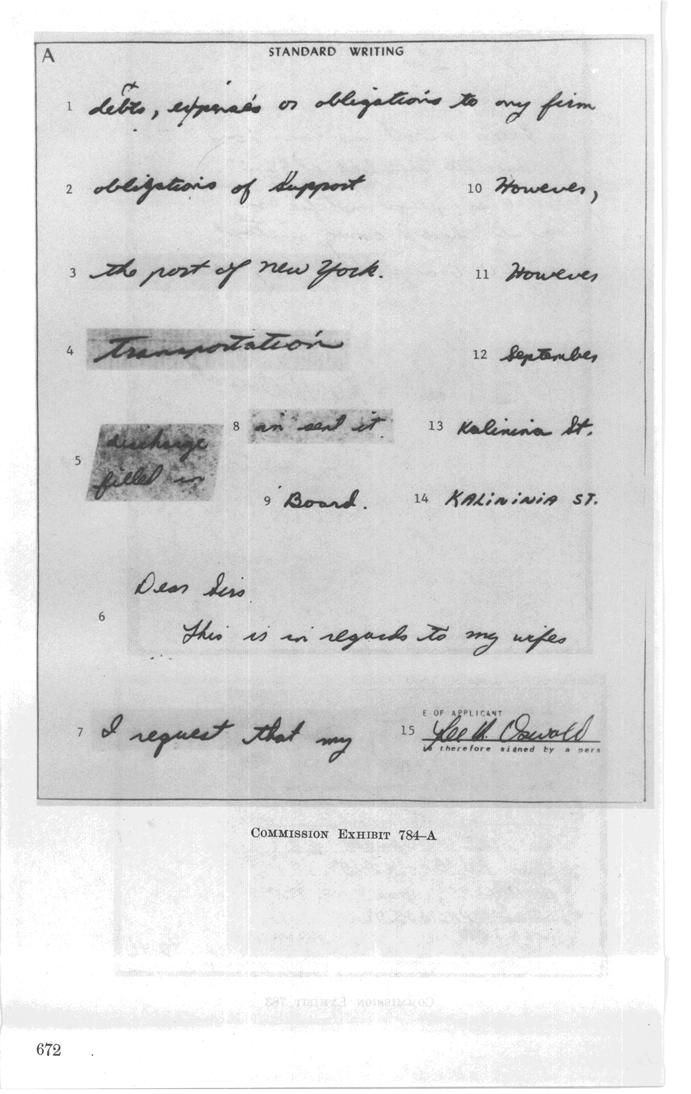 A
STANDARD WRITING
1 debts, expenses or obligations to any firm
2 obligations of support
10 However,
3 the port of New York.
11 However
4 transportation
12 September
5 discharge
filled in
8 an sent it
13 Kalinina St.
9 Board.
14 KALININIA ST.
6 Dear Sirs
This is in regards to my wifes
7 I request that my
15 E OF APPLICANT
Lee H. Oswald
therefore signed by a pers
COMMISSION EXHIBIT 784–A
COMMISSION EXHIBIT 783
672